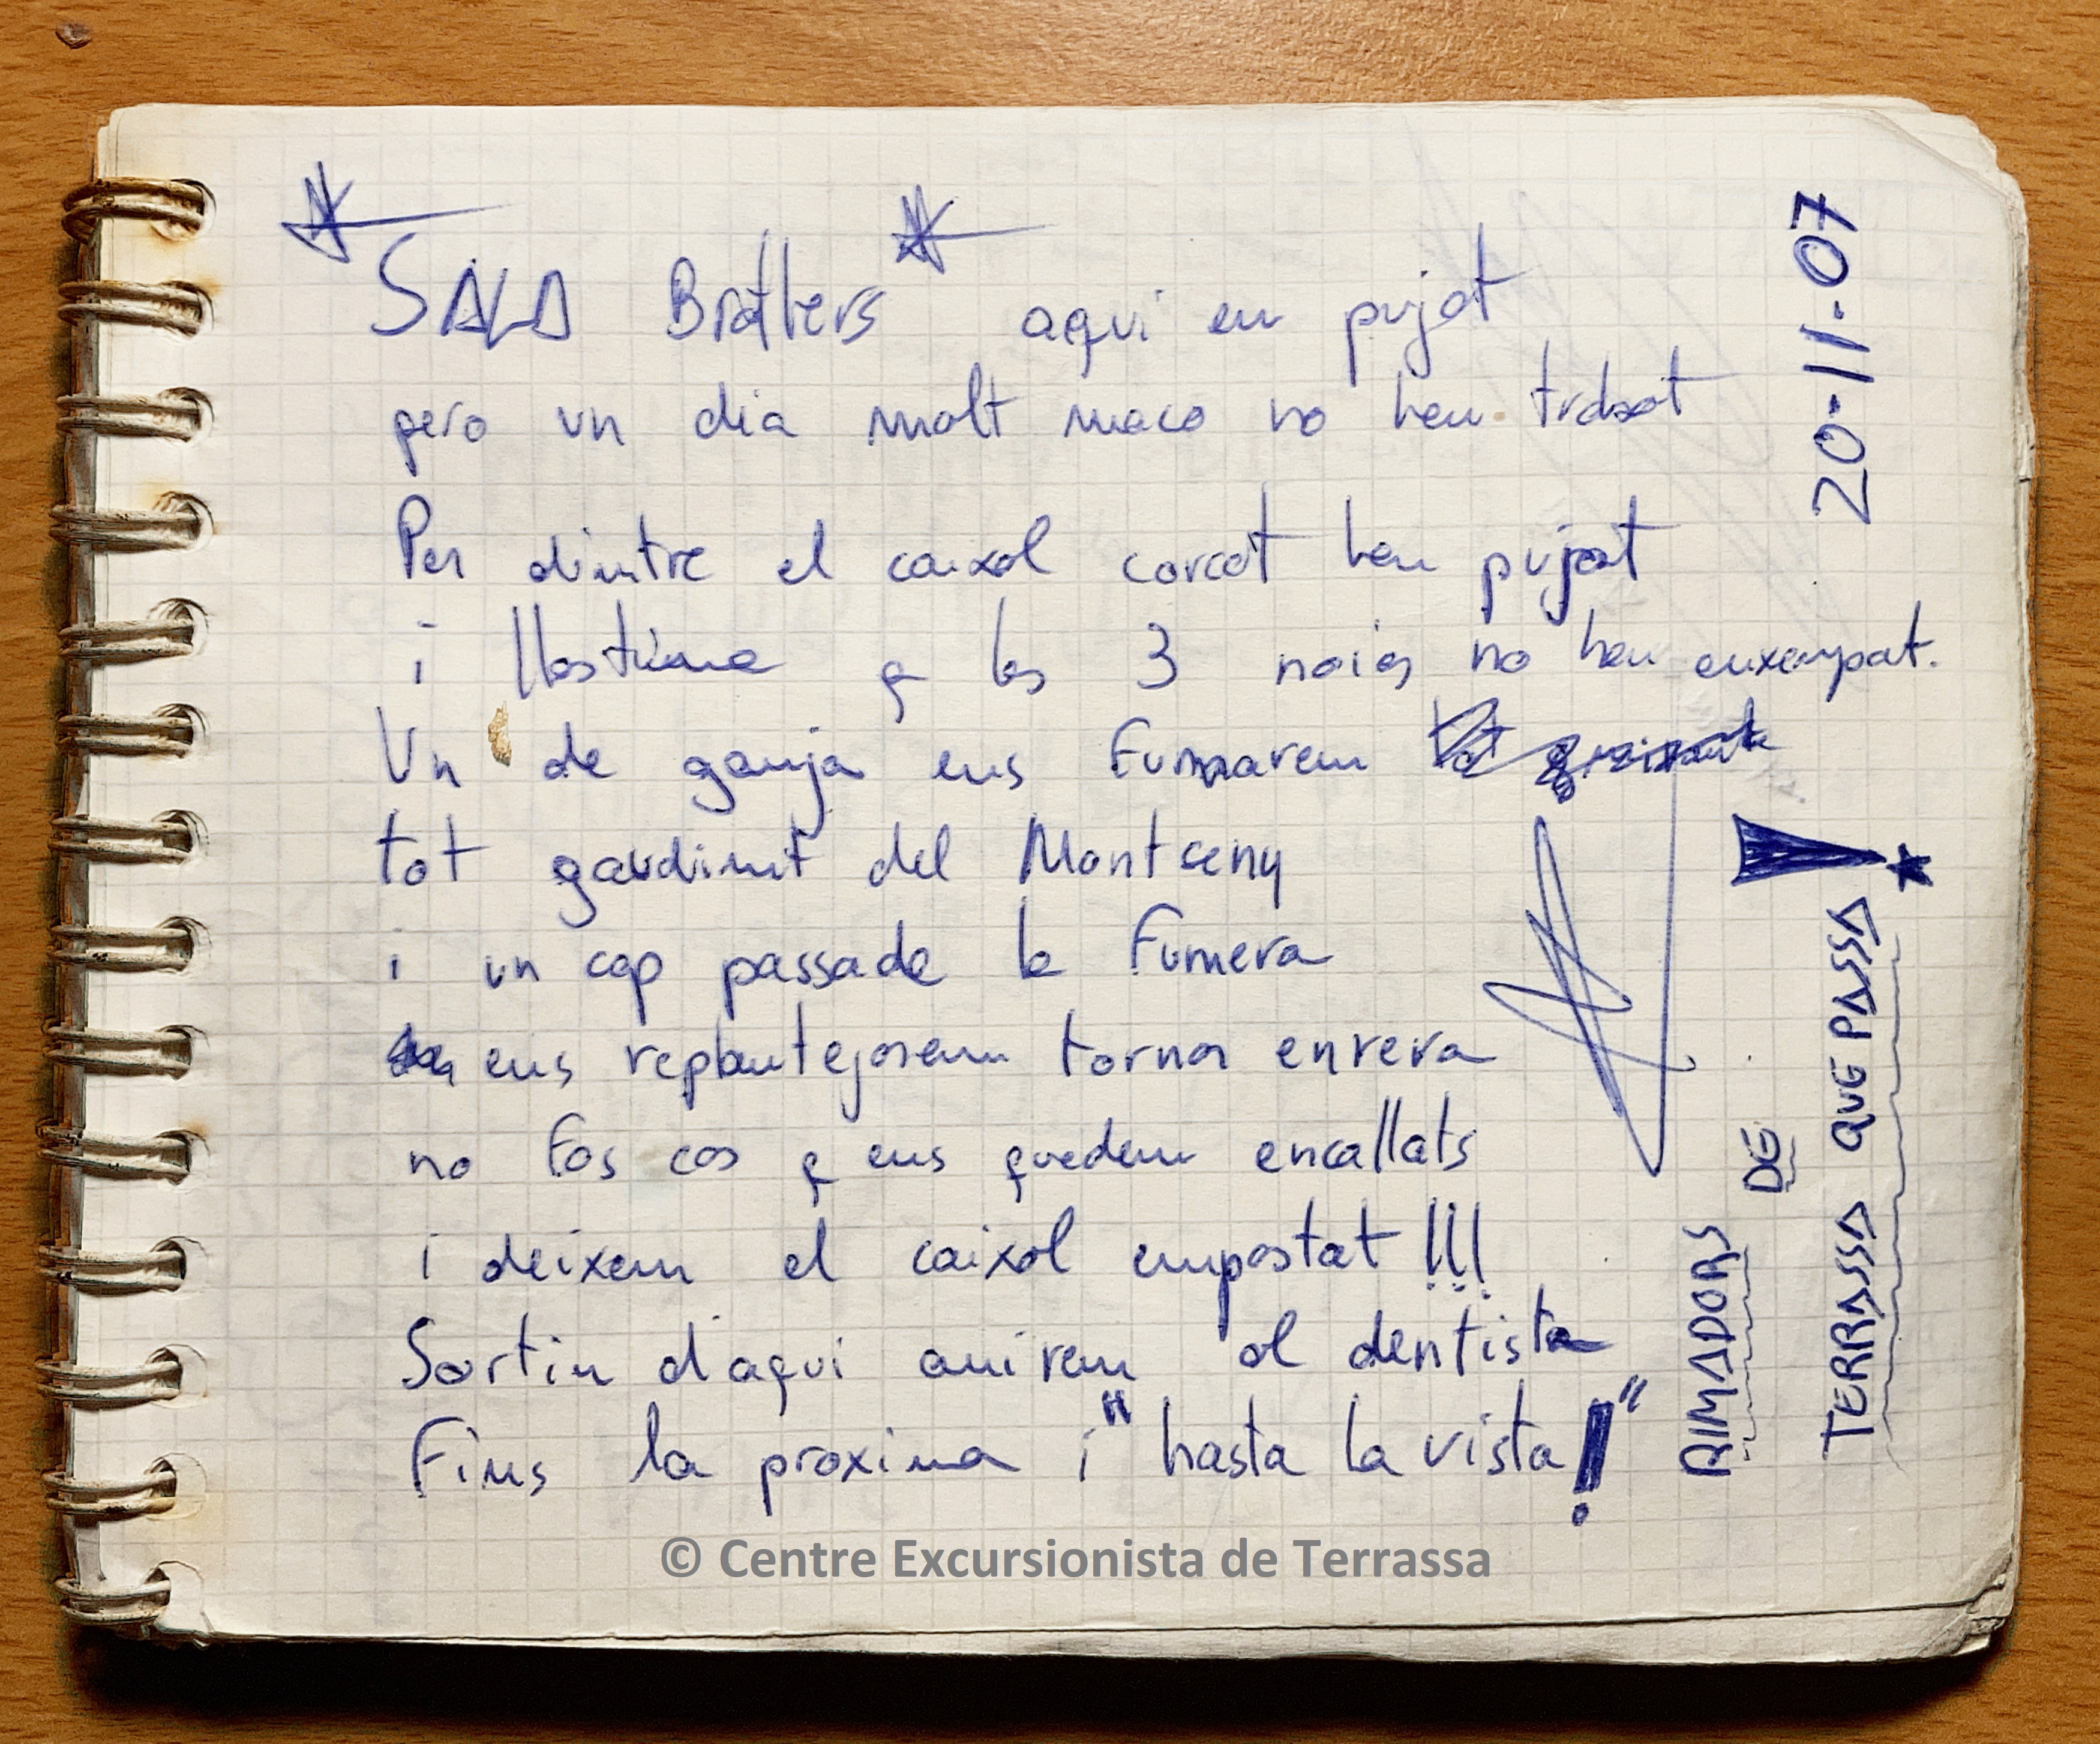 SALA Brothers aqui em pujat
pero un dia molt maco no hem trobat
Per dintre el caixal corcat hem pujat
i llastima q les 3 noies no hem enxampat.
Un de ganja ens Fumarem
tot gaudint del Montseny
i un cop passada la Fumera
ens replantejarem tornar enrera
no Fos cas q ens quedem encallats
i deixem el caixal empastat !!!
Sortin d'aqui anirem al dentista
Fins la proxima i "hasta la vista!"
20-11-07
RIMADORS
DE
TERRASSA QUE PASSA
© Centre Excursionista de Terrassa